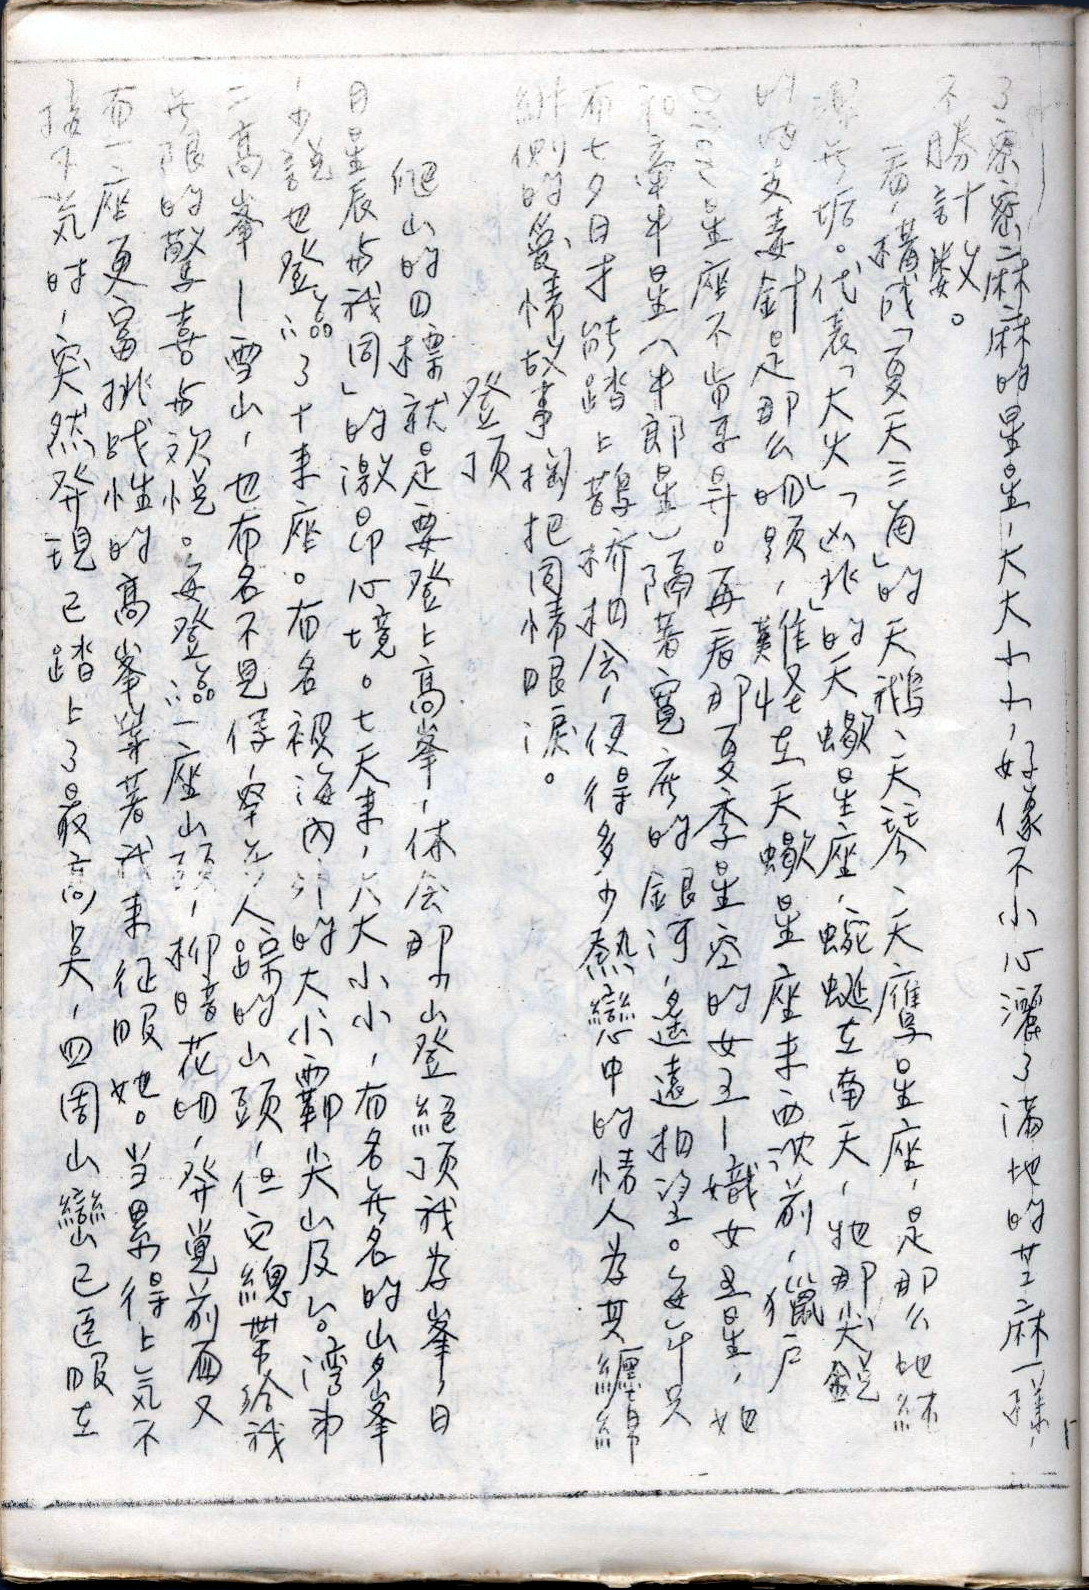 了密密麻麻的星星，大大小小，好像不小心灑了滿地的芝麻一樣，
不勝計數。
看，構成「夏天三角」的天鵝、天琴、天鷹星座，是那么地純
潔無垢。代表「大火」「凶兆」的天蠍星座，蜿蜒在南天，牠那尖銳
的 毒針是那么明顯，難怪在天蠍星座未西沈前，獵戶
星座不肯昇。再看那夏季星空的女王—織女星，她
和牽牛星（牛郎星）隔著寬廣的銀河，遙遠相望。每年只
有七夕日才能踏上鵲桥相会，使得多少熱戀中的情人為其纏綿
悱惻的愛情故事掬把同情眼淚。
登頂
爬山的目標就是要登上高峯，体会那「山登絕頂我為峯，日
月星辰与我同」的激昂心境。七天來，大大小小，有名無名的山峯
少說也登臨了十來座。有名視海內外的大小霸尖山及台灣第
二高峯—雪山，也有名不見傳，罕無人蹤的山頭，但它總帶給我
無限的驚喜与欢悅。每登臨一座山頭，柳暗花明，発覺前面又
有一座更富挑战性的高峯等著我來征服她。当累得上気不
接下気时，突然発現已踏上了最高点，四周山巒已臣服在